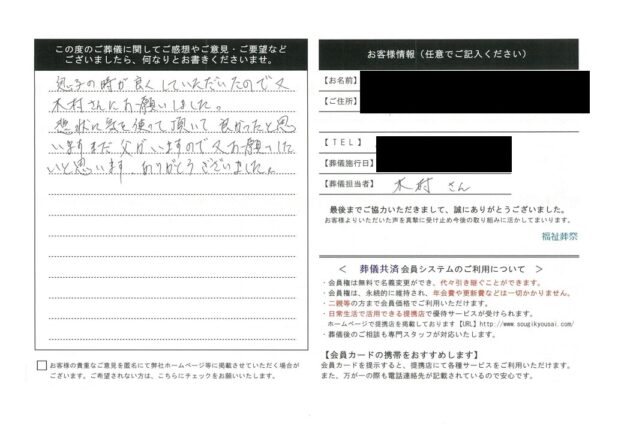 この度のご葬儀に関してご感想やご意見・ご要望など
ございましたら、何なりとお書きくださいませ。
息子の時が良くしていただいたので又
木村さんにお願いしました。
に気を使って頂いて良かったと思
いますまだ父がいますので又お願いした
いと思います。ありがとうございました。
□ お客様の貴重なご意見を匿名にて弊社ホームページ等に掲載させていただく場合が
ございます。ご希望されない方は、こちらにチェックをお願いいたします。
お客様情報（任意でご記入ください）
【お名前】
【ご住所】
【ＴＥＬ】
【葬儀施行日】
【葬儀担当者】 木村さん
最後までご協力いただきまして、誠にありがとうございました。
お客様よりいただいた声を真摯に受け止め今後の取り組みに活かしてまいります。
福祉葬祭
＜ 葬儀共済会員システムのご利用について ＞
・会員権は無料で名義変更ができ、代々引き継ぐことができます。
・会員権は、永続的に維持され、年会費や更新費などは一切かかりません。
・二親等の方まで会員価格でご利用いただけます。
・日常生活で活用できる提携店で優待サービスが受けられます。
ホームページで提携店を掲載しております【URL】http://www.sougikyousai.com/
・葬儀後のご相談も専門スタッフが対応いたします。
【会員カードの携帯をおすすめします】
会員カードを提示すると、提携店にて各種サービスをご利用いただけます。
また、万が一の際も電話連絡先が記載されているので安心です。